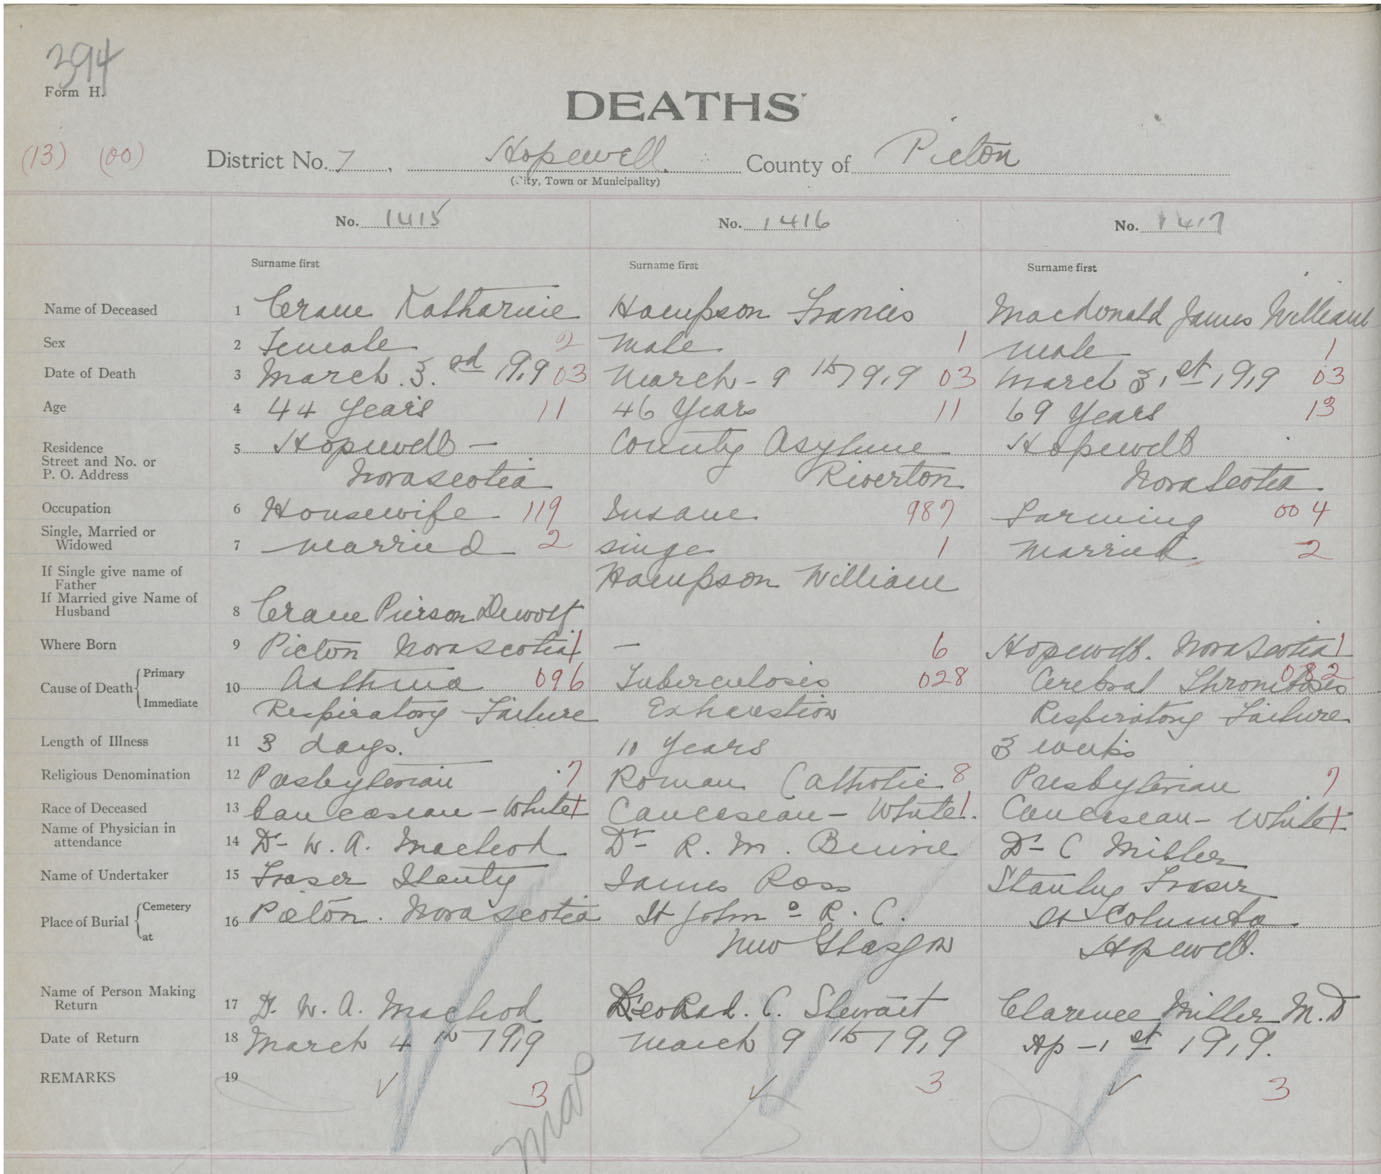 394
Form H.
DEATHS
(13) (00) District No. 7, Hopewell County of Pictou
(City, Town or Municipality)
No. 1415 No. 1416 No. 1417
Surname first Surname first Surname first
Name of Deceased 1 Crane Katharine Hampson Francis Macdonald James William
Sex 2 Female 2 Male 1 Male 1
Date of Death 3 March 3rd 1919 03 March - 9th 1919 03 March 31st 1919 03
Age 4 44 years 11 46 Years 11 69 Years 13
Residence
Street and No. or
P. O. Address
5 Hopewell - County Asylum Hopewell
Nova Scotia Riverton Nova Scotia
Occupation 6 Housewife 119 Insane 987 Farming 004
Single, Married or
Widowed
7 Married 2 singe 1 Married 2
If Single give name of
Father
Hampson William
If Married give Name of
Husband
8 Crane Pierson Dewolf
Where Born 9 Pictou Nova Scotia 1 — 6 Hopewell. Nova Scotia 1
Cause of Death Primary 10 Asthma 096 Tuberculosis 028 Cerebral Thrombosis 082
Immediate Respiratory Failure Exhaustion Respiratory Failure
Length of Illness 11 3 days. 10 Years 3 weeks
Religious Denomination 12 Presbyterian 7 Roman Catholic 8 Presbyterian 7
Race of Deceased 13 Caucasean - White 1 Caucasean - White 1 Caucasean - White 1
Name of Physician in
attendance
14 Dr W. A. Macleod Dr R. M. Dr C Miller
Name of Undertaker 15 Fraser Stanly James Ross Stanley Fraser
Place of Burial Cemetery 16 Pictou. Nova Scotia St Johns R. C. St Columba
at New Glasgow Hopewell.
Name of Person Making
Return
17 Dr. W. A. Macleod C. Stewart Clarence Miller M.D
Date of Return 18 March 4th 1919 March 9th 1919 Ap - 1st 1919.
REMARKS 19 3 3 3
Mar